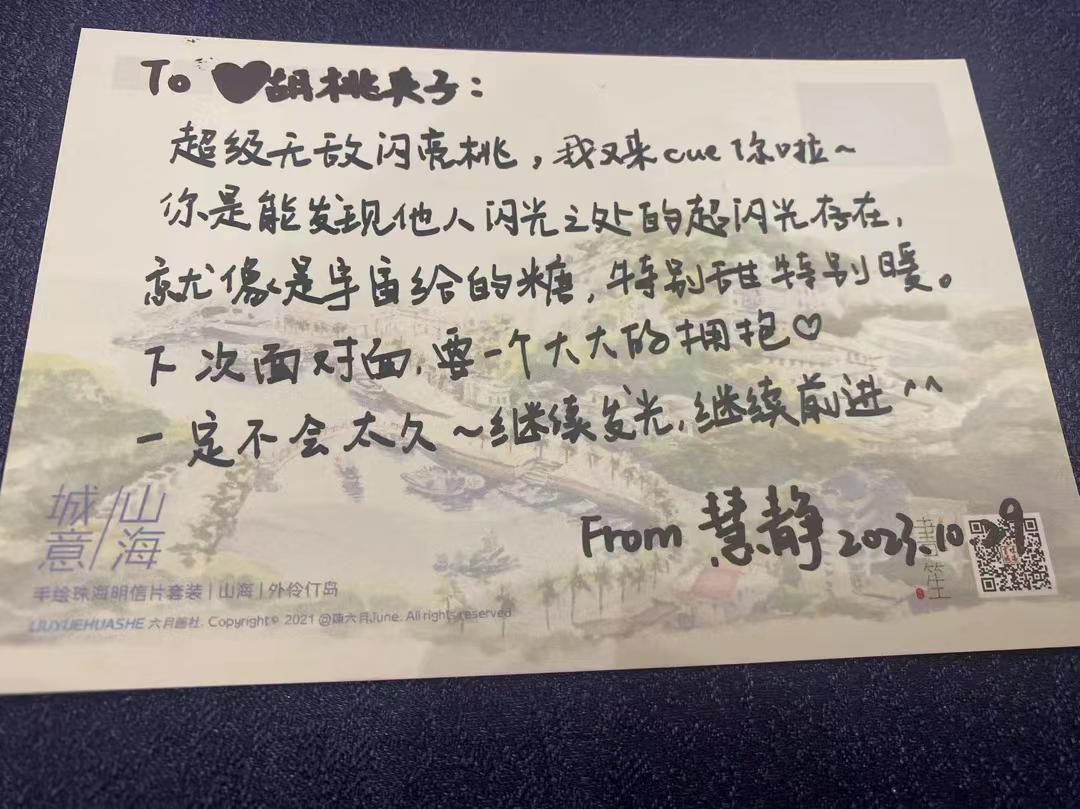 To ♥胡桃夹子：
超级无敌闪亮桃，我又来cue你啦~
你是能发现他人闪光之处的超闪光存在，
就像是宇宙给的糖，特别甜特别暖。
下次面对面，要一个大大的拥抱♡
一定不会太久~继续发光，继续前进^^
From 慧静 2023.10.29
城意/山海
手绘珠海明信片套装|山海|外伶仃岛
LIUYUEHUASHE 六月画社. Copyright© 2021 @陳六月June. All rights reserved